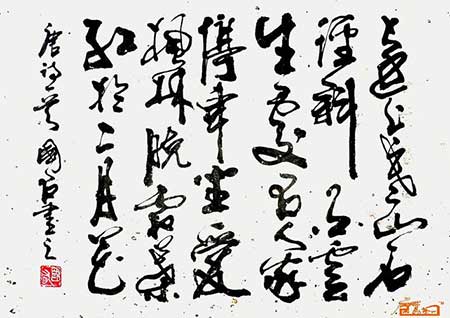 遠上寒山石
徑斜白雲
生處有人家
停車坐愛
楓林晚霜葉
紅於二月花
唐詩一首國書之